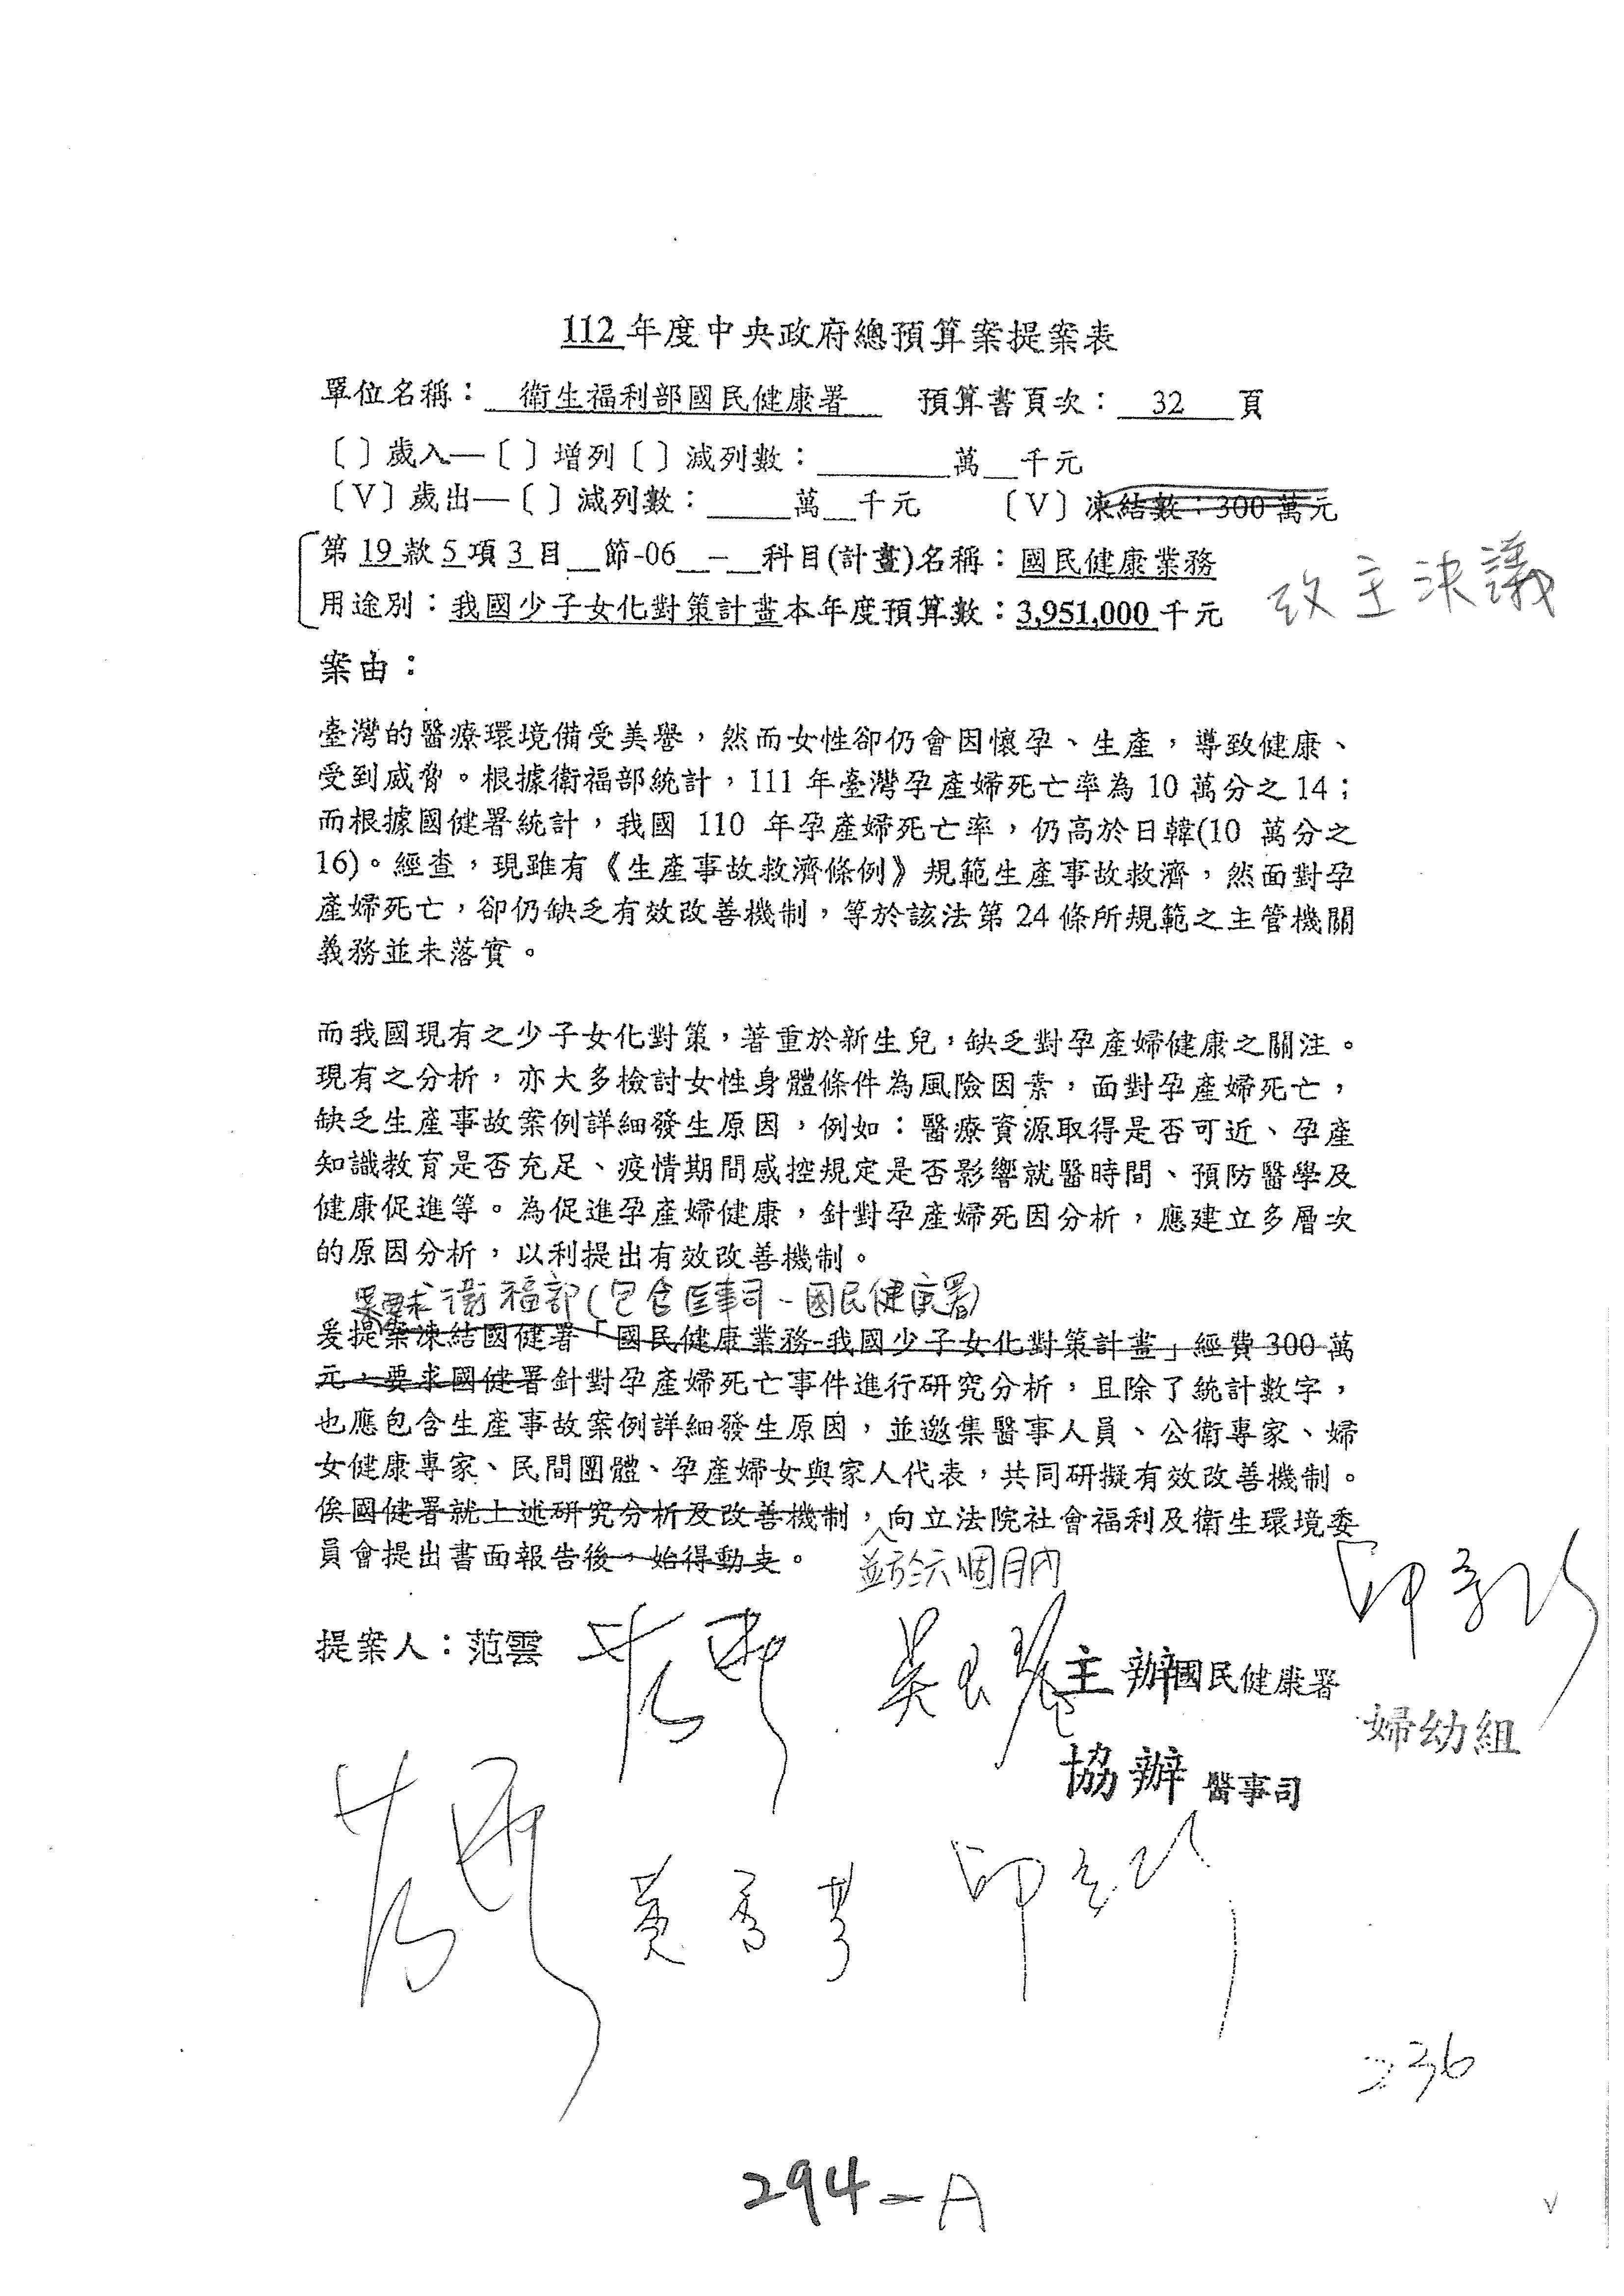 112年度中央政府總預算案提案表
單位名稱： 衛生福利部國民健康署 預算書頁次： 32 頁
〔〕歲入—〔〕增列〔〕減列數：________萬__千元
〔V〕歲出—〔〕減列數：_____萬__千元 〔V〕凍結數：300萬元
第19款5項3目__節-06__-__科目(計畫)名稱：國民健康業務
用途別：我國少子女化對策計畫本年度預算數：3,951,000千元
改主決議
案由：
臺灣的醫療環境備受美譽，然而女性卻仍會因懷孕、生產，導致健康、
受到威脅。根據衛福部統計，111年臺灣孕產婦死亡率為10萬分之14；
而根據國健署統計，我國 110 年孕產婦死亡率，仍高於日韓(10 萬分之
16)。經查，現雖有《生產事故救濟條例》規範生產事故救濟，然面對孕
產婦死亡，卻仍缺乏有效改善機制，等於該法第24條所規範之主管機關
義務並未落實。
而我國現有之少子女化對策，著重於新生兒，缺乏對孕產婦健康之關注。
現有之分析，亦大多檢討女性身體條件為風險因素，面對孕產婦死亡，
缺乏生產事故案例詳細發生原因，例如：醫療資源取得是否可近、孕產
知識教育是否充足、疫情期間感控規定是否影響就醫時間、預防醫學及
健康促進等。為促進孕產婦健康，針對孕產婦死因分析，應建立多層次
的原因分析，以利提出有效改善機制。
要求衛福部(包含医事司、國民健康署)
爰提案凍結國健署「國民健康業務-我國少子女化對策計畫」經費300萬
元，要求國健署針對孕產婦死亡事件進行研究分析，且除了統計數字，
也應包含生產事故案例詳細發生原因，並邀集醫事人員、公衛專家、婦
女健康專家、民間團體、孕產婦女與家人代表，共同研擬有效改善機制。
俟國健署就上述研究分析及改善機制，向立法院社會福利及衛生環境委
員會提出書面報告後，始得動支。
並於六個月內
提案人：范雲
范雲 吳玉琴
主辦國民健康署
婦幼組
協辦 醫事司
范雲 黃秀芳
236
294-A